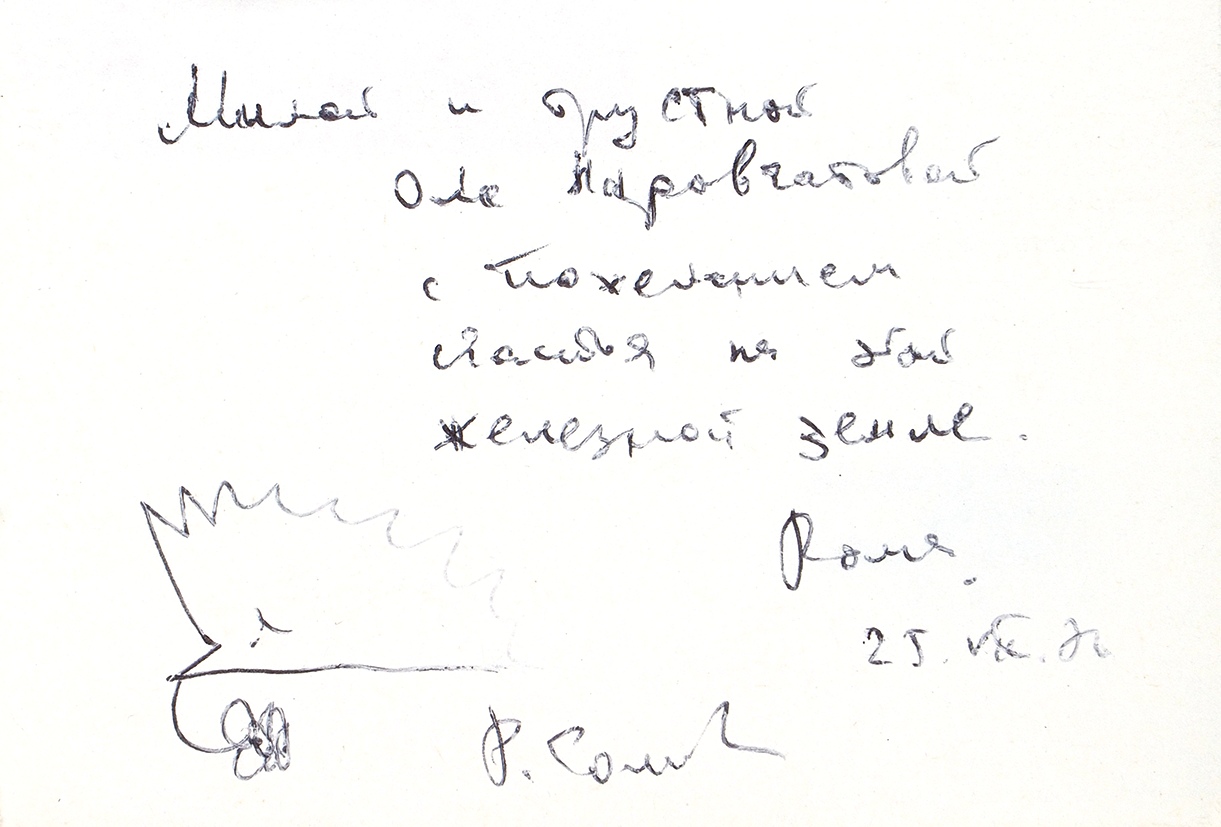 Милой и грустной
Оле Наровчатовой
с пожеланием
счастья на этой
железной земле.
Рома.
25.
Р. Солн